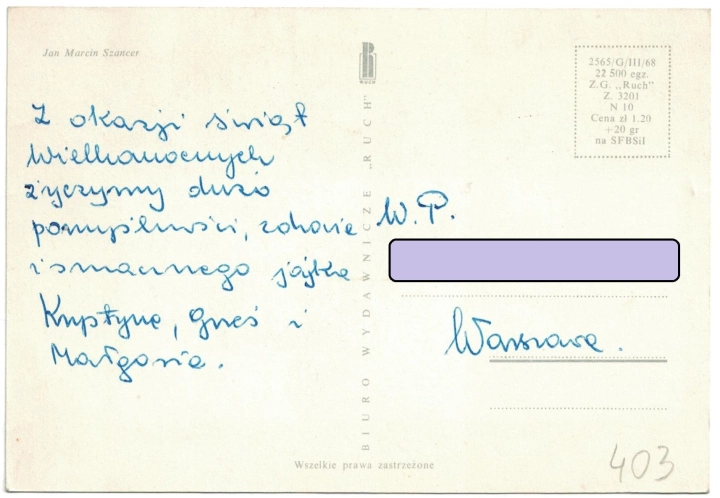 Jan Marcin Szancer
RUCH
2565/G/III/68
22 500 egz.
Z.G. „Ruch"
Z. 3201
N 10
Cena zł 1.20
+20 gr
na SFBSiI
Z okazji świąt
Wielkanocnych
życzymy dużo
pomyślności, zdrowia
i smacznego jajka
Krystyna, Grześ i
Małgosia.
BIURO WYDAWNICZE „RUCH"
W.P.
Warszawa.
Wszelkie prawa zastrzeżone
403